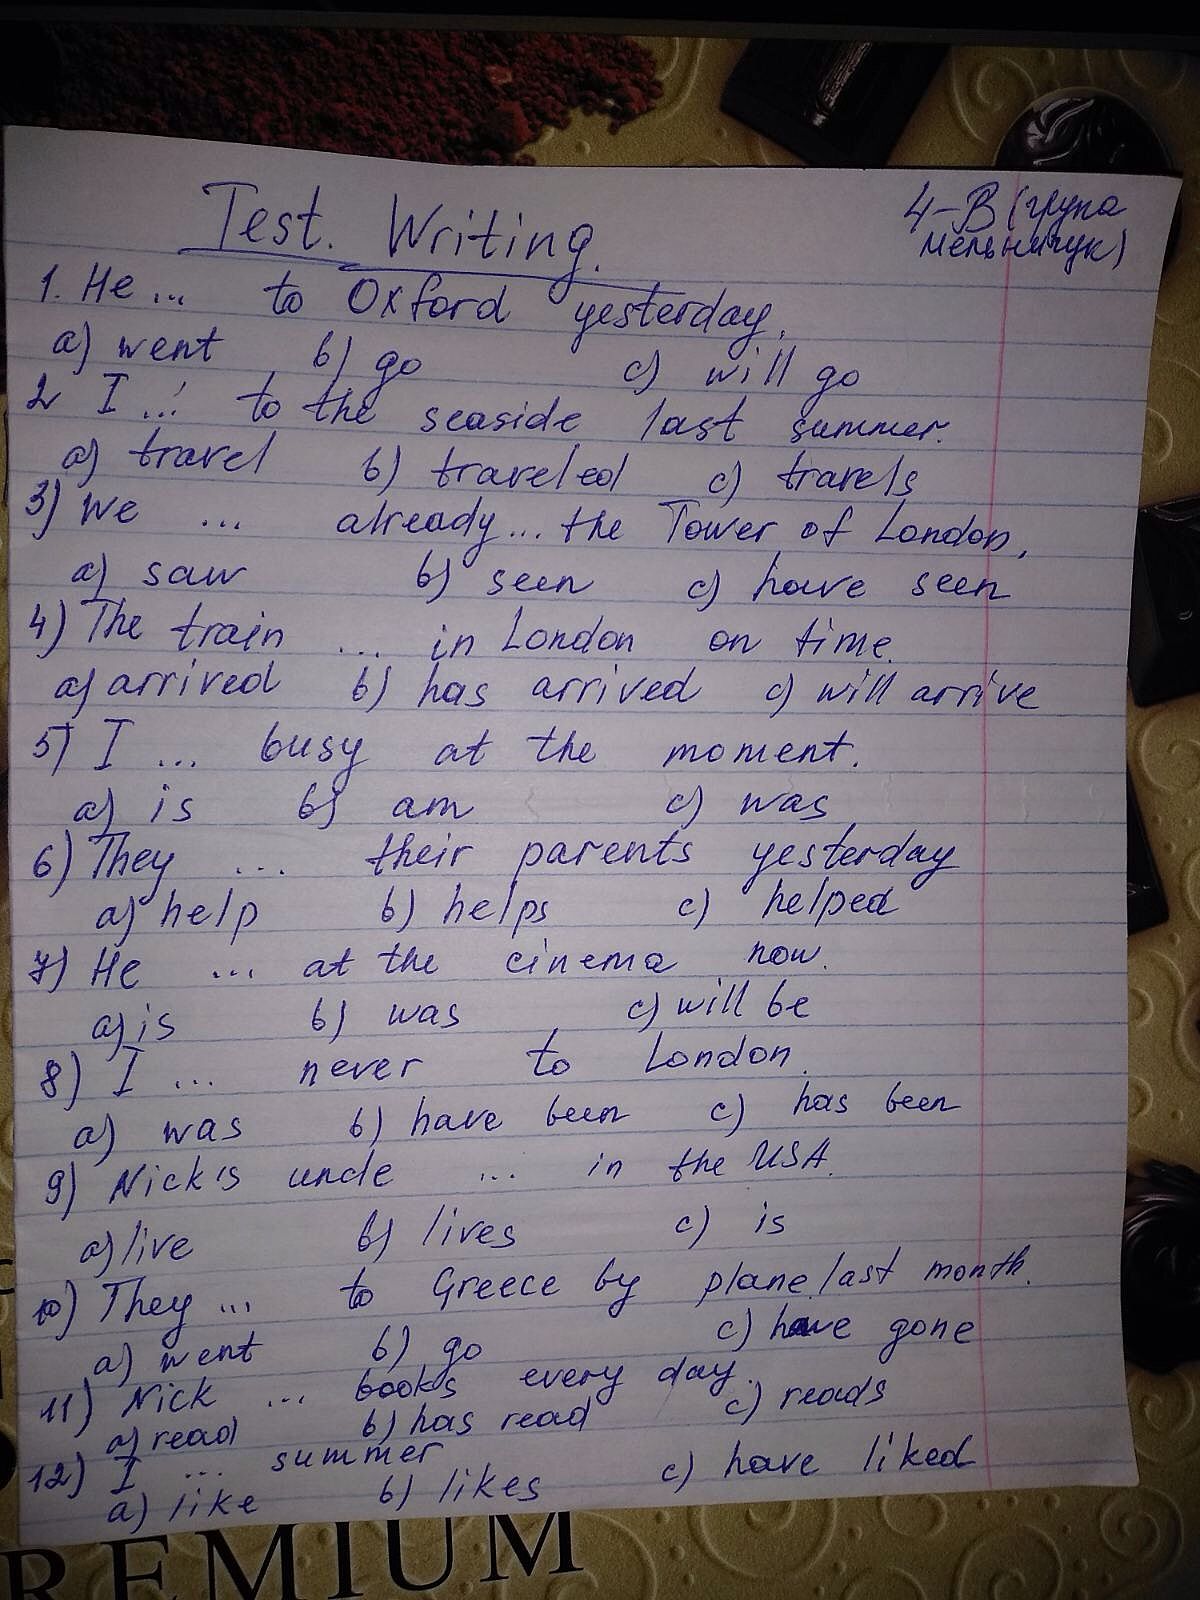 4-В (група
мельничук)
Test. Writing.
1. He ... to Oxford yesterday.
a) went b) go c) will go
2 I ... to the seaside last summer.
a) travel b) traveled c) travels
3) We ... already ... the Tower of London.
a) saw b) seen c) have seen
4) The train ... in London on time.
a) arrived b) has arrived c) will arrive
5) I ... busy at the moment.
a) is b) am c) was
6) They ... their parents yesterday
a) help b) helps c) helped
7) He ... at the cinema now.
a) is b) was c) will be
8) I ... never to London.
a) was b) have been c) has been
9) Nick's uncle ... in the USA.
a) live b) lives c) is
10) They ... to Greece by plane last month.
a) went b) go c) have gone
11) Nick ... books every day.
a) read b) has read c) reads
12) I ... summer
a) like b) likes c) have liked
PREMIUM